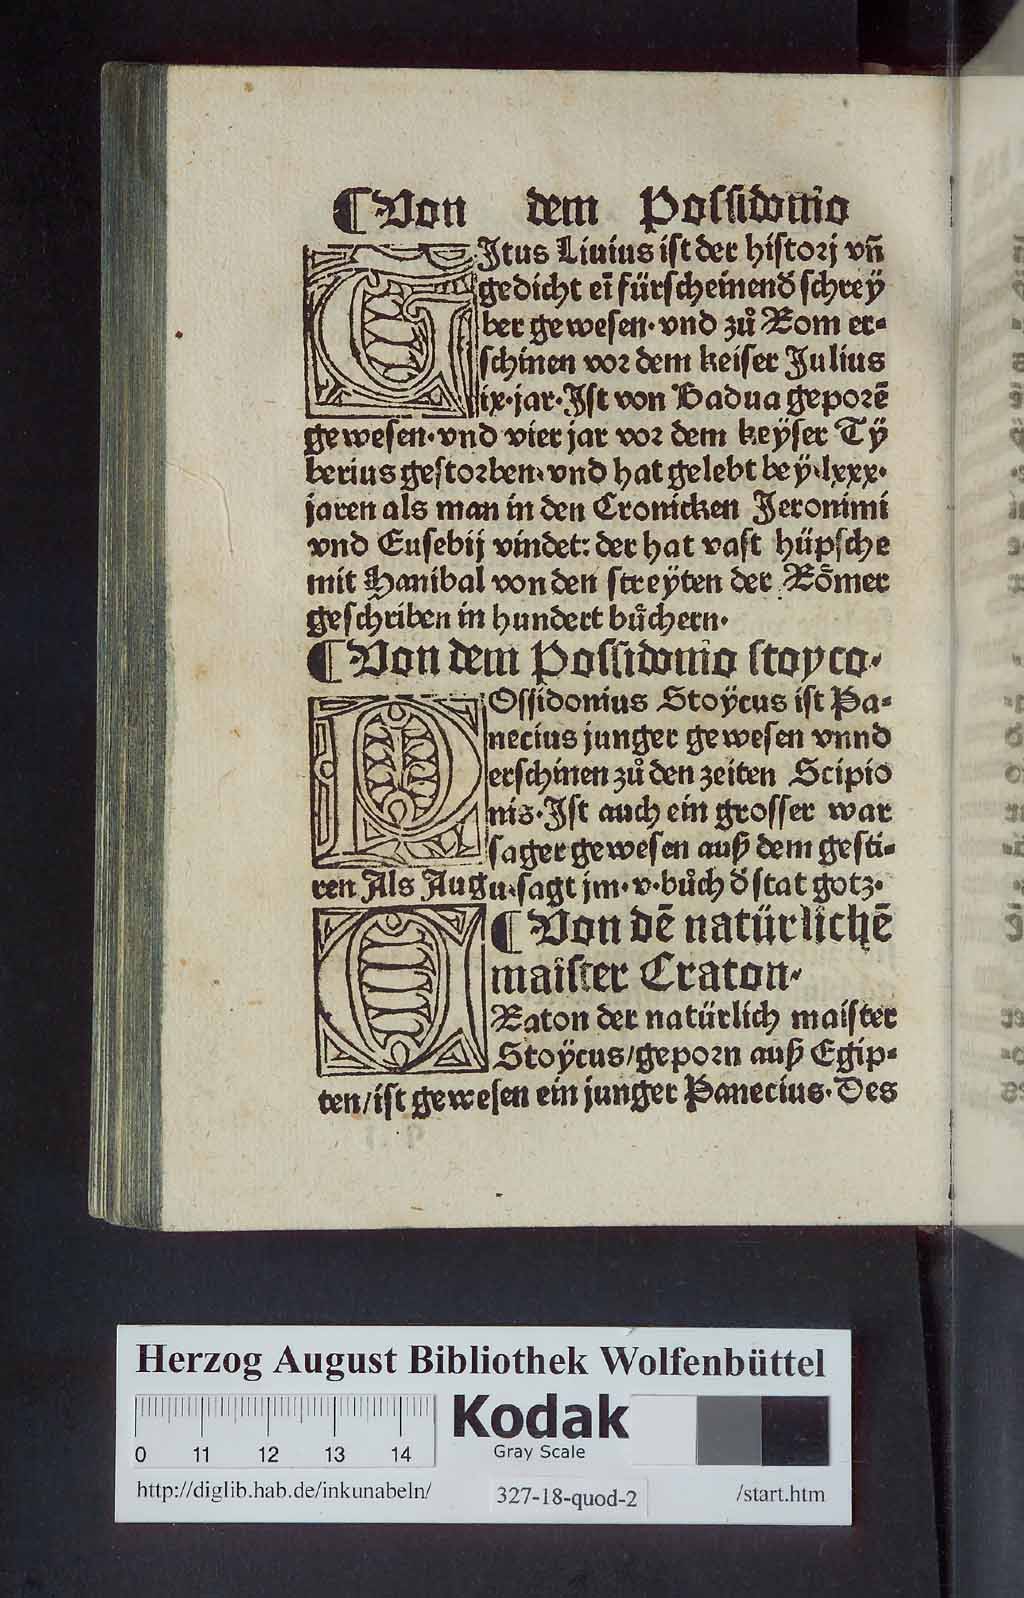 ¶ Von dem Possidonio
TItus Liuius ist der historj vn̄
gedicht ein̄ fürscheinend̛ schreÿ
ber gewesen· vnd zů Rom er⸗
schinen vor dem keiser Julius
ix· jar· Ist von Badua geporē
gewesen· vnd vier jar vor dem keÿser Tÿ
berius gestorben· vnd hat gelebt beÿ lxxx·
jaren als man in den Cronicken Jeronimi
vnd Eusebij vindet: der hat vast hüpsche
mit Hanibal von den streÿten der Rőmer
geschriben in hundert bůchern·
¶ Von dem Possidonio stoyco·
POssidonius Stoÿcus ist Pa⸗
necius junger gewesen vnnd
erschinen zů den zeiten Scipio
nis· Ist auch ein grosser war
sager gewesen auß dem gesti⸗
ren Als Augu· sagt jm· v· bůch d̛ stat gotz·
¶ Von dē natürlichē
maister Craton·
CRaton der natürlich maister
Stoÿcus/ geporn auß Egip⸗
ten/ ist gewesen ein junger Panecius· Des
Herzog August Bibliothek Wolfenbüttel
0 11 12 13 14
Kodak
Gray Scale
http://diglib.hab.de/inkunabeln/
327-18-quod-2
/start.htm